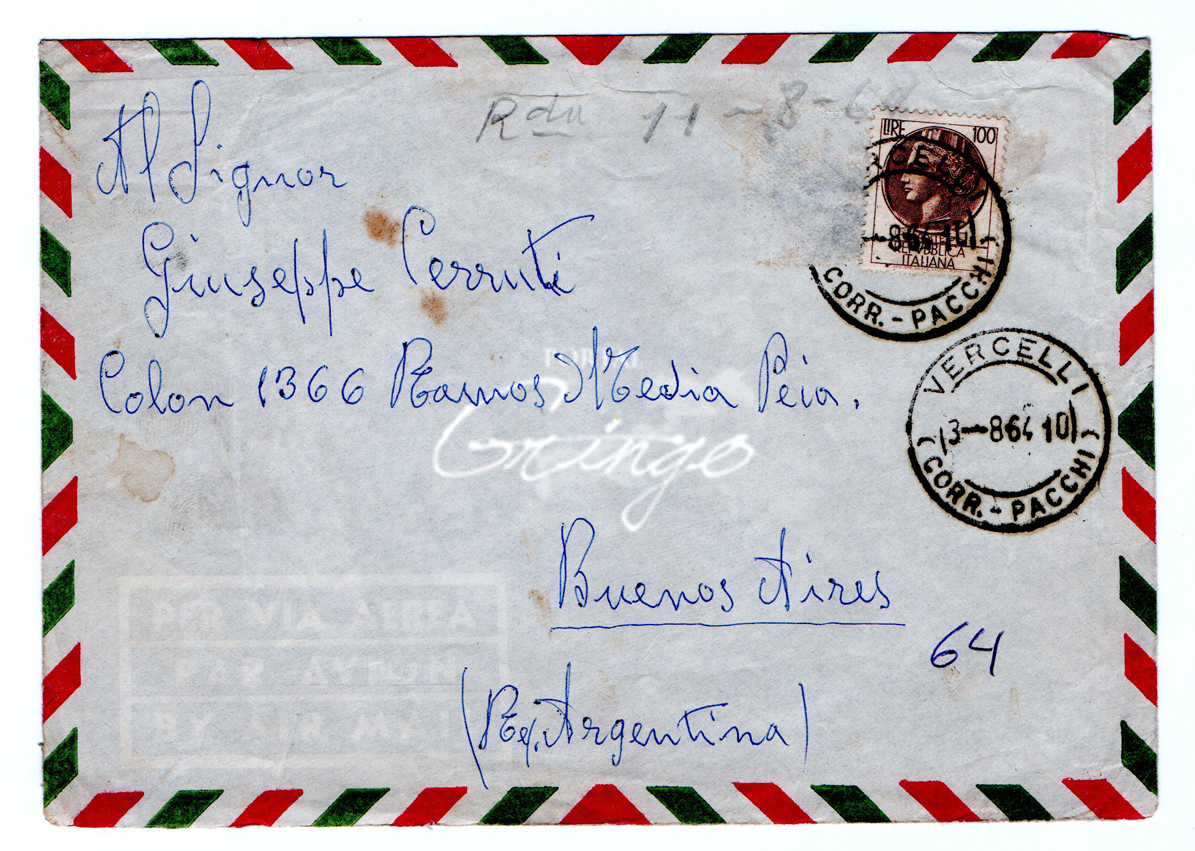 Rda 11-8-64
LIRE 100
REPUBBLICA
ITALIANA
-864 10
CORR.-PACCHI
Al Signor
Giuseppe Cerruti
Colon 1366 Ramos Media Peia.
VERCELLI
3-864 10
CORR.-PACCHI
Gringo
Buenos Aires
64
(Rep. Argentina)
PER VIA AEREA
PAR AVION
BY AIR MAIL